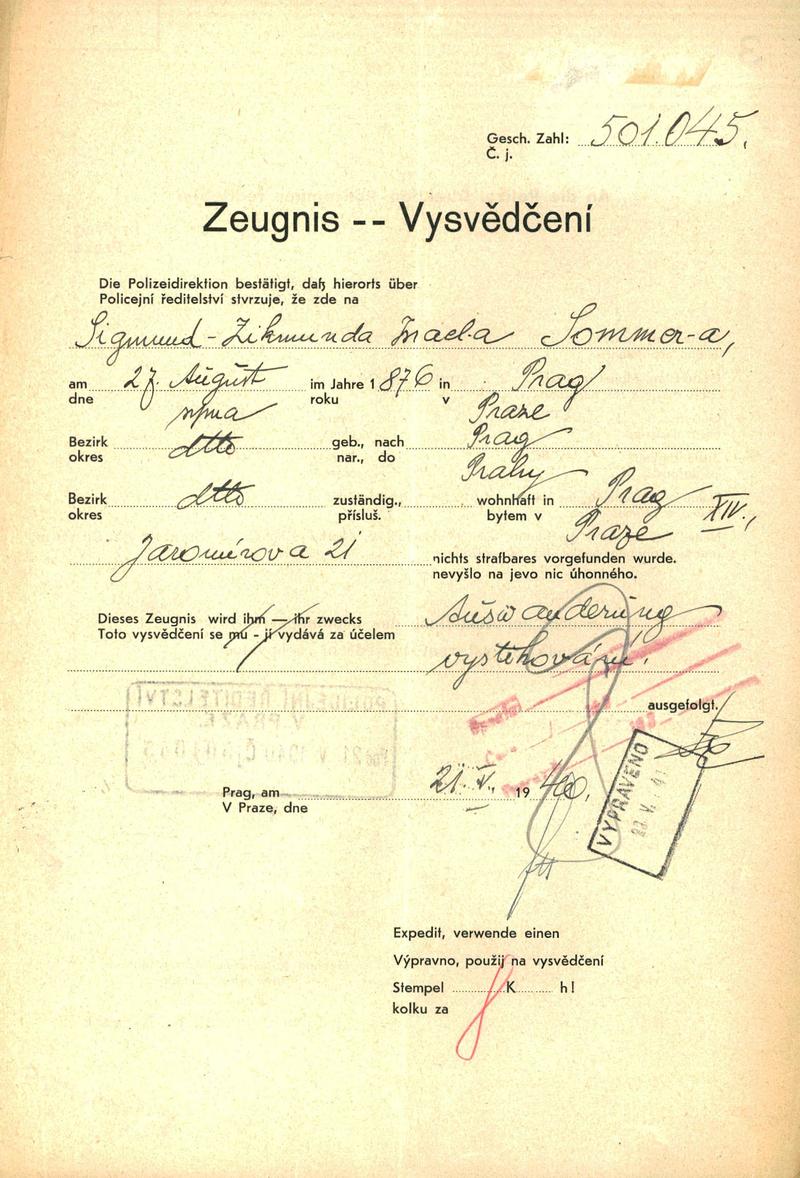 Gesch. Zahl: 501.045,
Č. j.
Zeugnis -- Vysvědčení
Die Polizeidirektion bestätigt, daß hierorts über
Policejní ředitelství stvrzuje, že zde na
Sigmund-Zikmunda Israel-a Sommer-a,
am 27. August im Jahre 1876 in Prag
dne srpna roku v Praze
Bezirk dtto geb., nach Prag
okres nar., do Prahy
Bezirk dtto zuständig., wohnhaft in Prag XIV.,
okres přísluš. bytem v Praze
Jaromírova 21 nichts strafbares vorgefunden wurde.
nevyšlo na jevo nic úhonného.
Dieses Zeugnis wird ihm — ihr zwecks Auswanderung
Toto vysvědčení se mu - jí vydává za účelem
vystěhování.
ausgefolgt.
POLICEJNÍ ŘEDITELSTVÍ
V PRAZE.
Prag, am 21. V. 1940.
V Praze, dne
VYPRAVENO
Expedit, verwende einen
Výpravno, použij na vysvědčení
Stempel K h!
kolku za